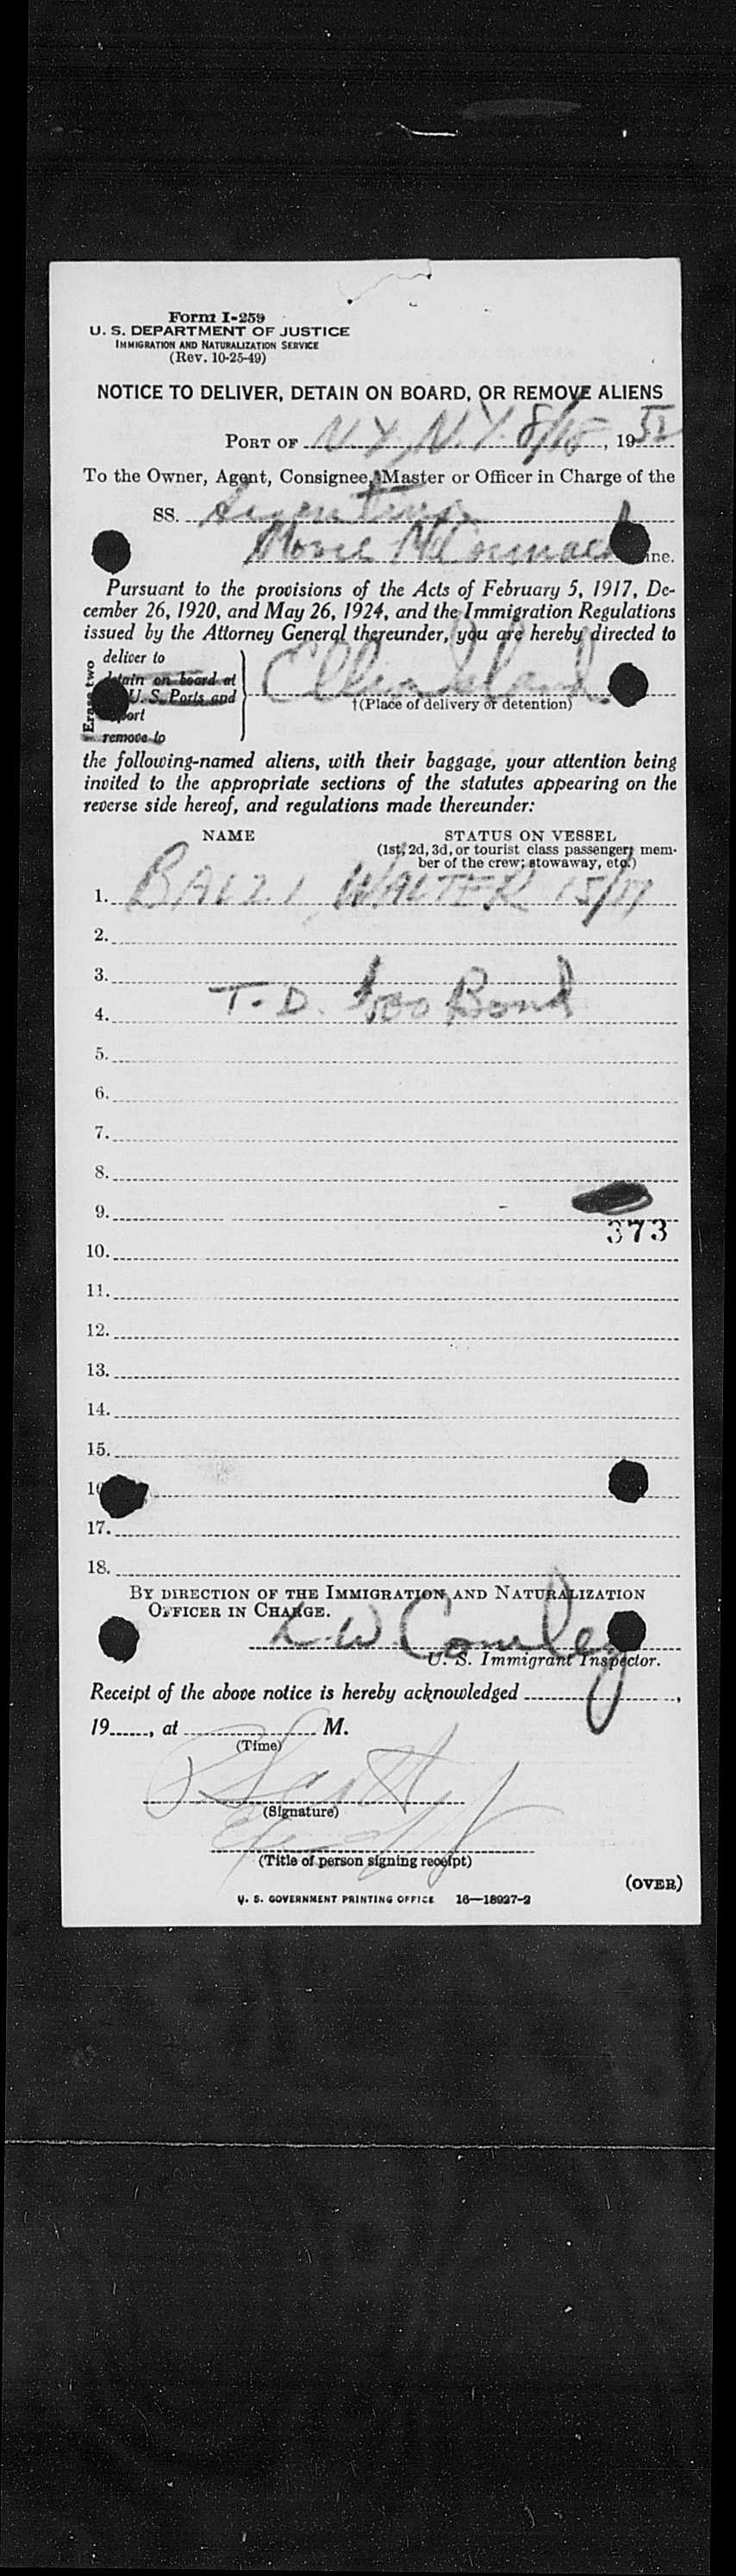 Form I-259
U. S. DEPARTMENT OF JUSTICE
IMMIGRATION AND NATURALIZATION SERVICE
(Rev. 10-25-49)
NOTICE TO DELIVER, DETAIN ON BOARD, OR REMOVE ALIENS
PORT OF N.Y, N.Y. 8/18, 1952
To the Owner, Agent, Consignee, Master or Officer in Charge of the
SS. Argentina
McCormack ine.
Pursuant to the provisions of the Acts of February 5, 1917, De-
cember 26, 1920, and May 26, 1924, and the Immigration Regulations
issued by the Attorney General thereunder, you are hereby directed to
Erase two
deliver to
detain on board at
U. S. Ports and
ort
remove to
Ellis Island
†(Place of delivery or detention)
the following-named aliens, with their baggage, your attention being
invited to the appropriate sections of the statutes appearing on the
reverse side hereof, and regulations made thereunder:
NAME STATUS ON VESSEL
(1st, 2d, 3d, or tourist class passenger; mem-
ber of the crew; stowaway, etc.)
1. BALZI, WALTER 15/17
2.
3.
T. D. $500 Bond
4.
5.
6.
7.
8.
9.
373
10.
11.
12.
13.
14.
15.
16
17.
18.
BY DIRECTION OF THE IMMIGRATION AND NATURALIZATION
OFFICER IN CHARGE.
U. S. Immigrant Inspector.
Receipt of the above notice is hereby acknowledged
19, at M.
(Time)
(Signature)
(Title of person signing receipt)
(OVER)
U. S. GOVERNMENT PRINTING OFFICE 16—18927-2